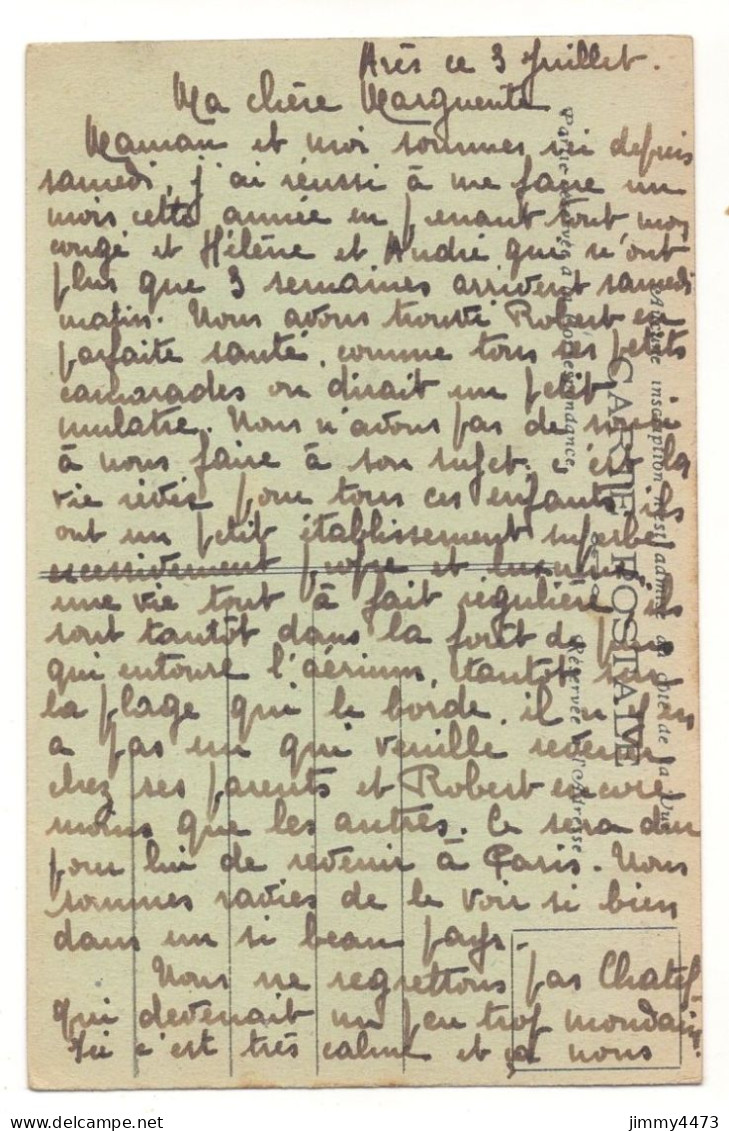 Arès ce 3 Juillet.
Ma chère Marguerite
Maman et moi sommes ici depuis
samedi, j'ai réussi à me faire un
mois cette année en prenant tout mon
congé et Hélène et André qui n'ont
plus que 3 semaines arrivent samedi
matin. Nous avons trouvé Robert en
parfaite santé, comme tous ses petits
camarades on dirait un petit
mulatre. Nous n'avons pas de souci
à nous faire à son sujet. c'est la
vie rêvée pour tous ces enfants, ils
ont un petit établissement superbe
excessivement propre et lumineux
une vie tout à fait régulière, ils
sont tantôt dans la forêt de pins
qui entoure l'aérium, tantôt sur
la plage qui le borde, il n'y en
a pas un qui veuille revenir
chez ses parents et Robert encore
moins que les autres. Ce sera dur
pour lui de revenir à Paris. Nous
sommes ravies de le voir si bien
dans un si beau pays.
Nous ne regrettons pas Chatel,
qui devenait un peu trop mondain.
Ici c'est très calme et ça nous
CARTE POSTALE
Aucune inscription n'est admise du côté de la Vue
Partie réservée à la Correspondance
Réservée à l'Adresse
jimmy4473